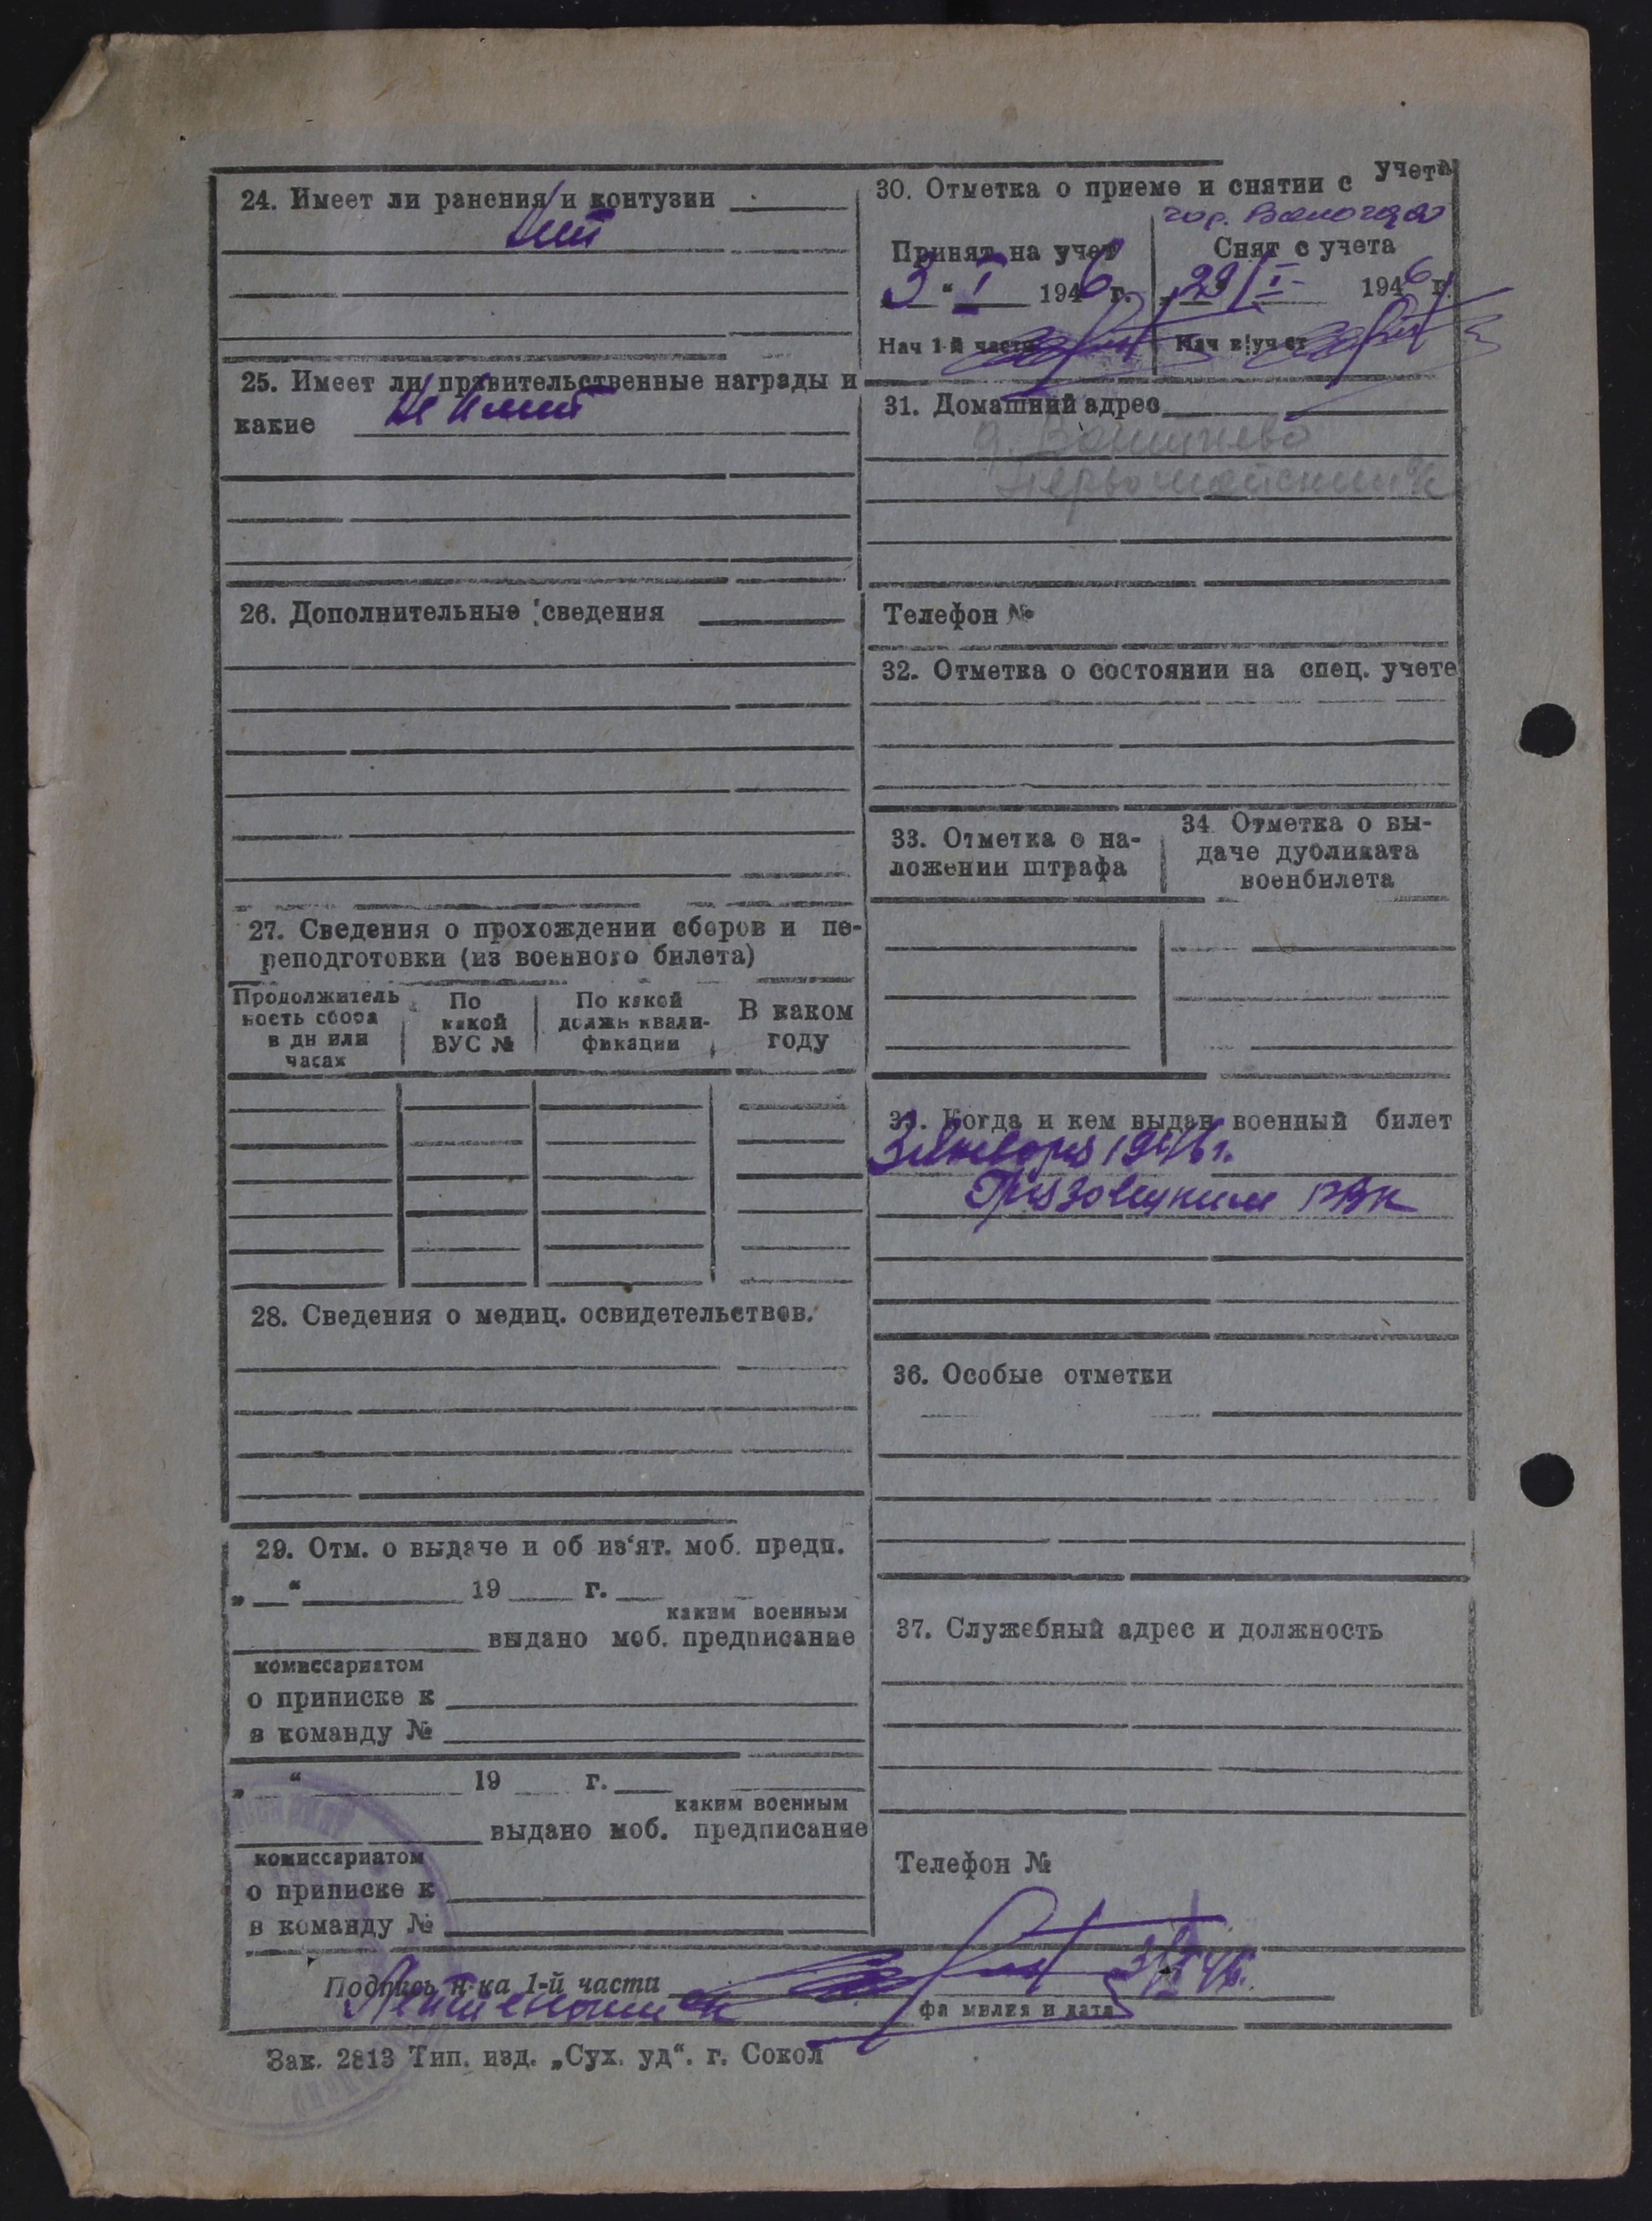 24. Имеет ли ранения и контузии
Нет
25. Имеет ли правительственные награды и
какие Не имеет
26. Дополнительные сведения
27. Сведения о прохождении сборов и пе-
реподготовки (из военного билета)
Продолжитель
ность сбора
в дн или
часах
По
какой
ВУС №
По какой
должн квали-
фикации
В каком
году
28. Сведения о медиц. освидетельствов.
29. Отм. о выдаче и об из'ят. моб. предп.
„ “ 19 г.
каким военным
выдано моб. предписание
комиссариатом
о приписке к
в команду №
„ “ 19 г.
каким военным
выдано моб. предписание
комиссариатом
о приписке к
в команду №
30. Отметка о приеме и снятии с учета
гор. Вологда
Принят на учет
3 “ I 1946 г.
Нач 1-й части
Снят с учета
29/I 1946 г.
Нач
31. Домашний адрес
д.
Первомайский
Телефон №
32. Отметка о состоянии на спец. учете
33. Отметка о на-
ложении штрафа
34 Отметка о вы-
даче дубликата
военбилета
35. Когда и кем выдан военный билет
3 января 1946 г.
Грязовецким РВК
36. Особые отметки
37. Служебный адрес и должность
Телефон №
Подпись н-ка 1-й части
3/I 46.
фамилия и дата
Зак. 2813 Тип. изд. „Сух. уд“. г. Сокол